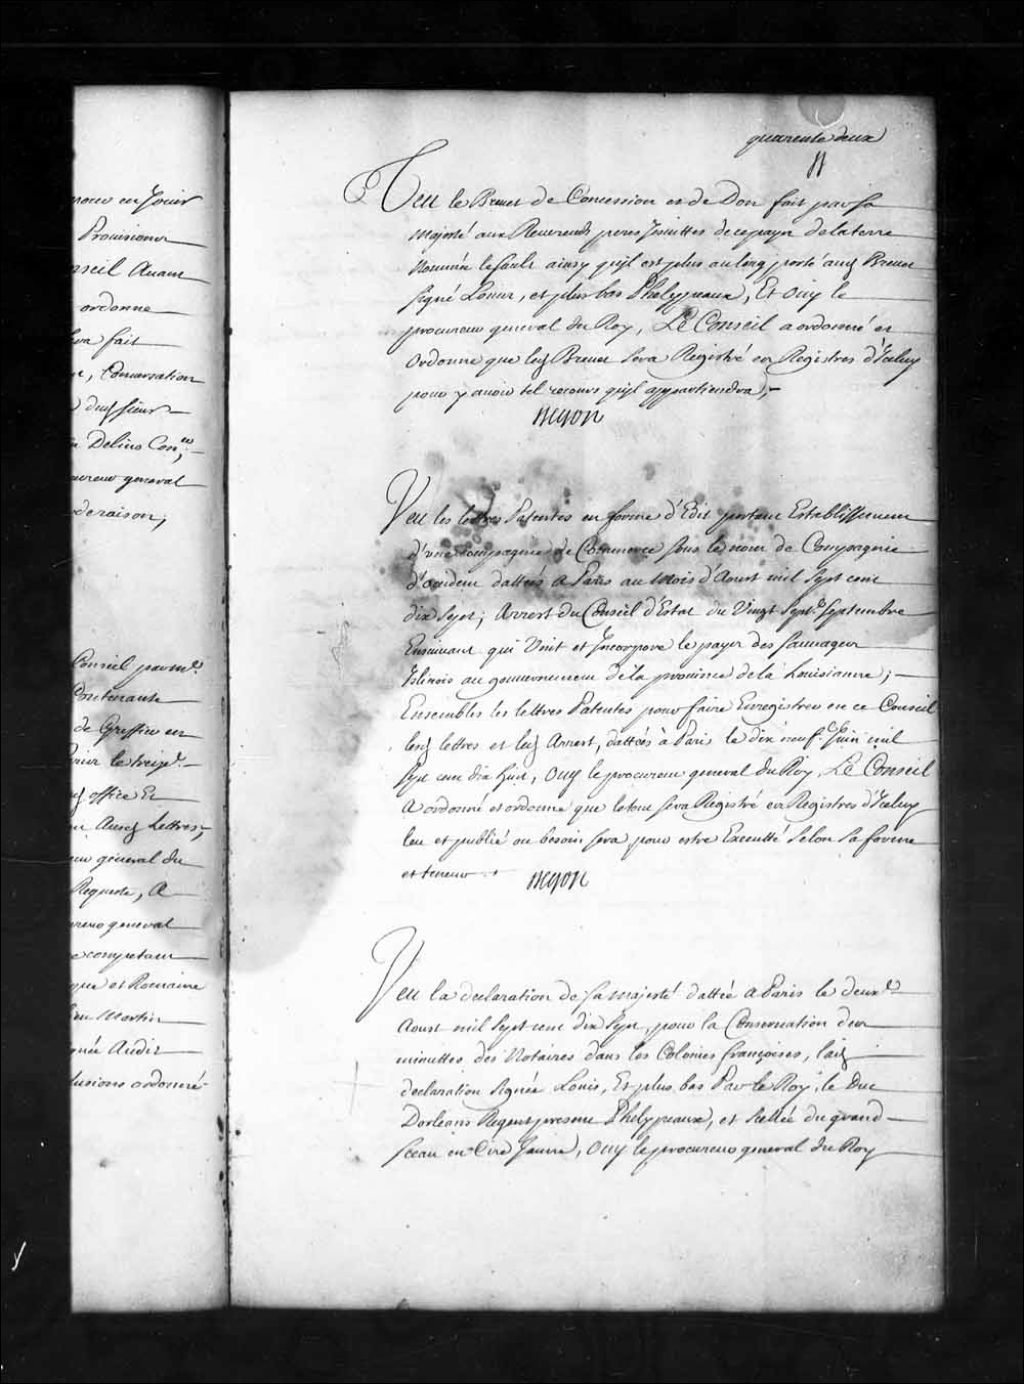 quarente deux
Veu le Brevet de Concession et de Don fait par sa
Majesté aux Reverends peres Jesuittes de ce payer de la terre
Nommée le Sault ainsy qu'il est plus au long porté aud Brevet
signé Louis, et plus bas Phelypeaux, Et Ouy le
procureur general du Roy, Le Conseil a ordonné et
ordonne que led Brevet sera Registré ez Registres d'Iceluy
pour y avoir tel recours qu'il appartiendra;-
Begon
Veu les lettres Patentes en forme d'Edit portant Establissement
d'une compagnie de Commerce sous le nom de Compagnie
d'occident dattées a Paris au Mois d'Aoust mil sept cent
dix sept; Arrest du Conseil d'Estat du Vingt sept.e Septembre
Ensuivant qui Unit et Incorpore le payer des Sauvages
Islinois au gouvernement de la province de la Louisianne;-
Ensembles les lettres Patentes pour faire Enregistrer en ce Conseil
lesd lettres et led Arrest, dattées à Paris le dix neuf.e Juin mil
sept cent dix huit, Ouy le procureur general du Roy, Le Conseil
A ordonné et ordonne que le tout sera Registré ez Registres d'Iceluy
leu et publié ou besoin sera pour estre Executté Selon Sa forme
et teneur
Begon
Veu la declaration de sa Majesté dattée a Paris le deux.e
Aoust mil sept cent dix sept, pour la Conservation des
minuttes des Notaires dans les Colonies françoises, lad
declaration Signée Louis, Et plus bas Par le Roy, le Duc
Dorleans Regent present Phelypeaux, et scellée du grand
sceau en Cire Jaune, Ouy le procureur general du Roy
en Jouir
Provisions
Conseil Avant
ordonne
sera fait
Conversation
dud sieur
Delino Con.er;
procureur general
de raison;
Conseil par
Contenante
de Greffier en
le treiz.e
office Et
Ausd Lettres;
general du
Requeste, A
general
competant
et Romaine
Martin
Audit
ordonné